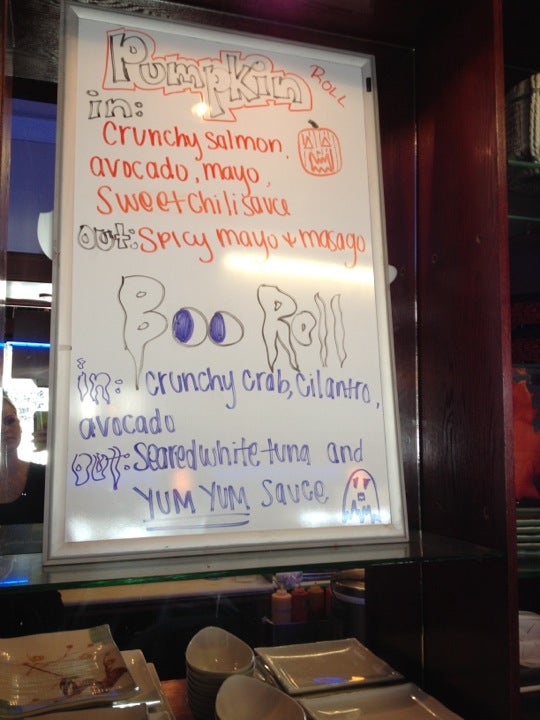 Pumpkin ROLL
in:
Crunchy salmon,
avocado, mayo,
Sweet chili sauce
out: Spicy mayo + masago
Boo Roll
in: crunchy crab, cilantro,
avocado
out: Seared white tuna and
YUM YUM sauce